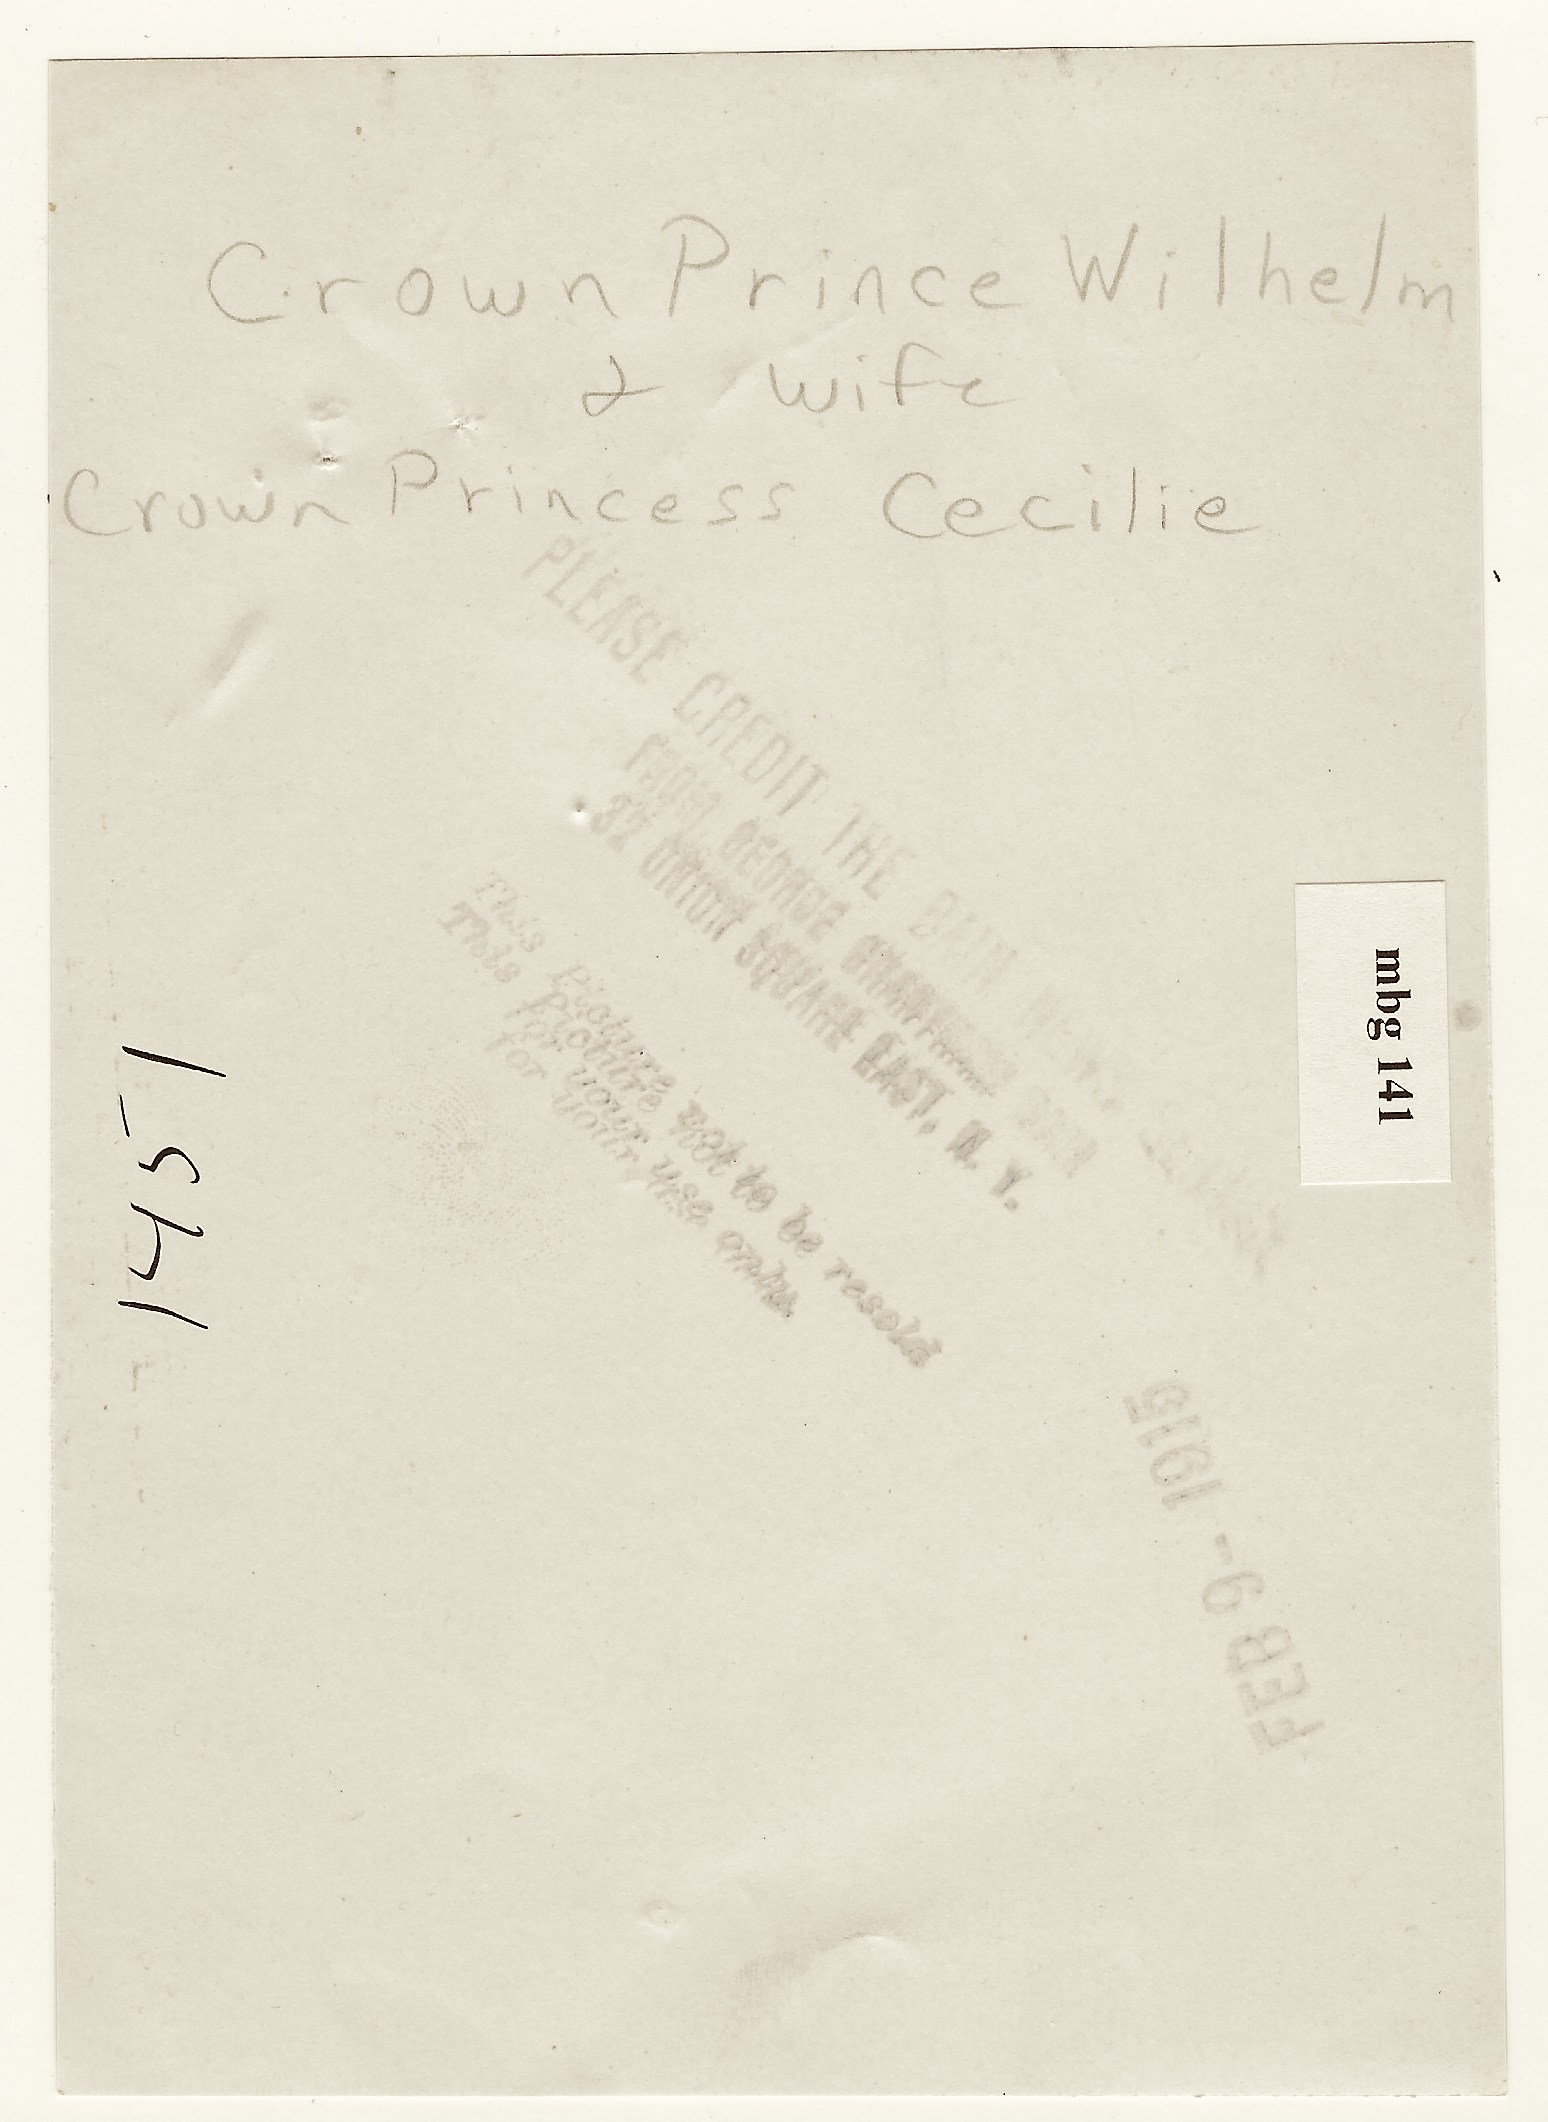 Crown Prince Wilhelm
& wife
Crown Princess Cecilie
PLEASE CREDIT THE BAIN
FROM GEORGE GRANTHAM BAIN
32 UNION SQUARE EAST, N. Y.
This Picture not to be resold
for your use only.
mbg 141
1451
FEB 9- 1915